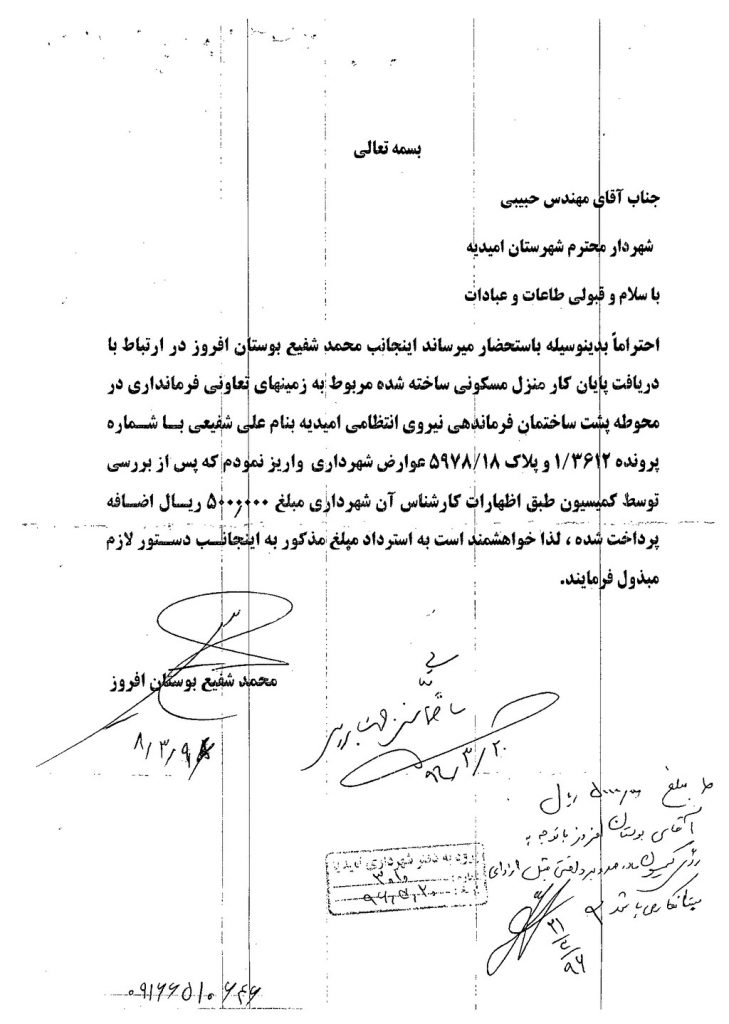 بسمه تعالی
جناب آقای مهندس حبیبی
شهردار محترم شهرستان امیدیه
با سلام و قبولی طاعات و عبادات
احتراماً بدینوسیله باستحضار میرساند اینجانب محمد شفیع بوستان افروز در ارتباط با
دریافت پایان کار منزل مسکونی ساخته شده مربوط به زمینهای تعاونی فرمانداری در
محوطه پشت ساختمان فرماندهی نیروی انتظامی امیدیه بنام علی شفیعی بـا شـماره
پرونده ۱/۳۶۱۲ و پلاک ۵۹۷۸/۱۸ عوارض شهرداری واریز نمودم که پس از بررسی
توسط کمیسیون طبق اظهارات کارشناس آن شهرداری مبلغ ۵۰۰۰,۰۰۰ ریـال اضـافه
پرداخت شده ، لذا خواهشمند است به استرداد مبلغ مذکور به اینجانـب دسـتور لازم
مبذول فرمایند.
محمد شفیع بوستان افروز
۹۶/۳/۲۰
مبلغ ریال
آقای بوستان افروز با توجه به
قبل از رای
می باشد
ورود به دفتر شهرداری امیدیه
شماره: ۳۰۱۰
۹۶,۵,۲۰
۰۹۱۶۶۵۱۰۶۴۶